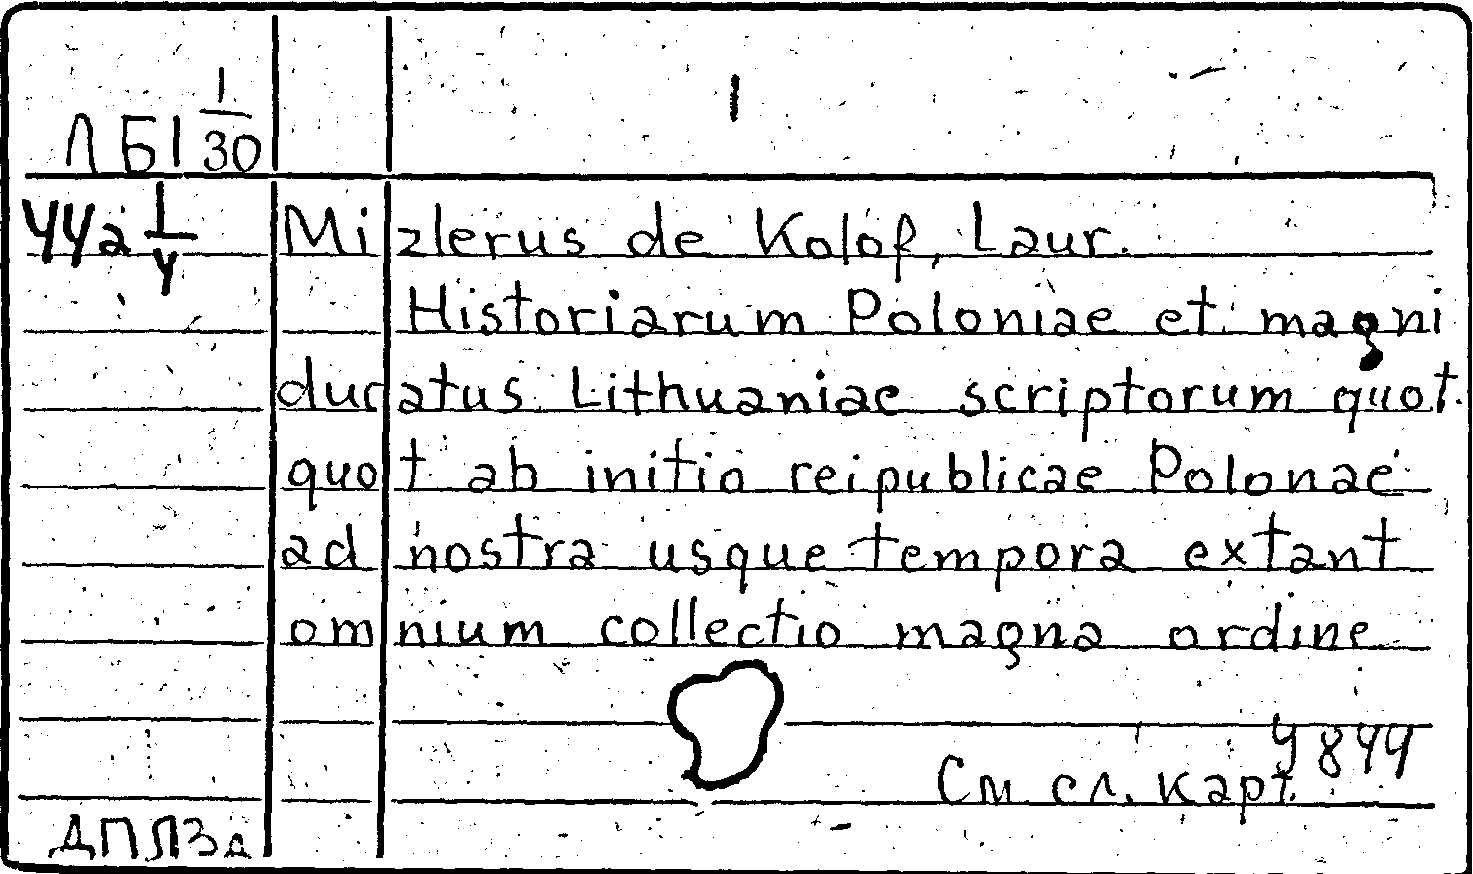 1
ЛБ1 1/30
44а 1/4
Mizlerus de Kolof, Laur.
Historiarum Poloniae et magni
ducatus Lithuaniae scriptorum quot.
quot ab initio reipublicae Polonae
ad nostra usque tempora extant
omnium collectio magna ordine
4844
См. сл. карт.
ДПЛЗа